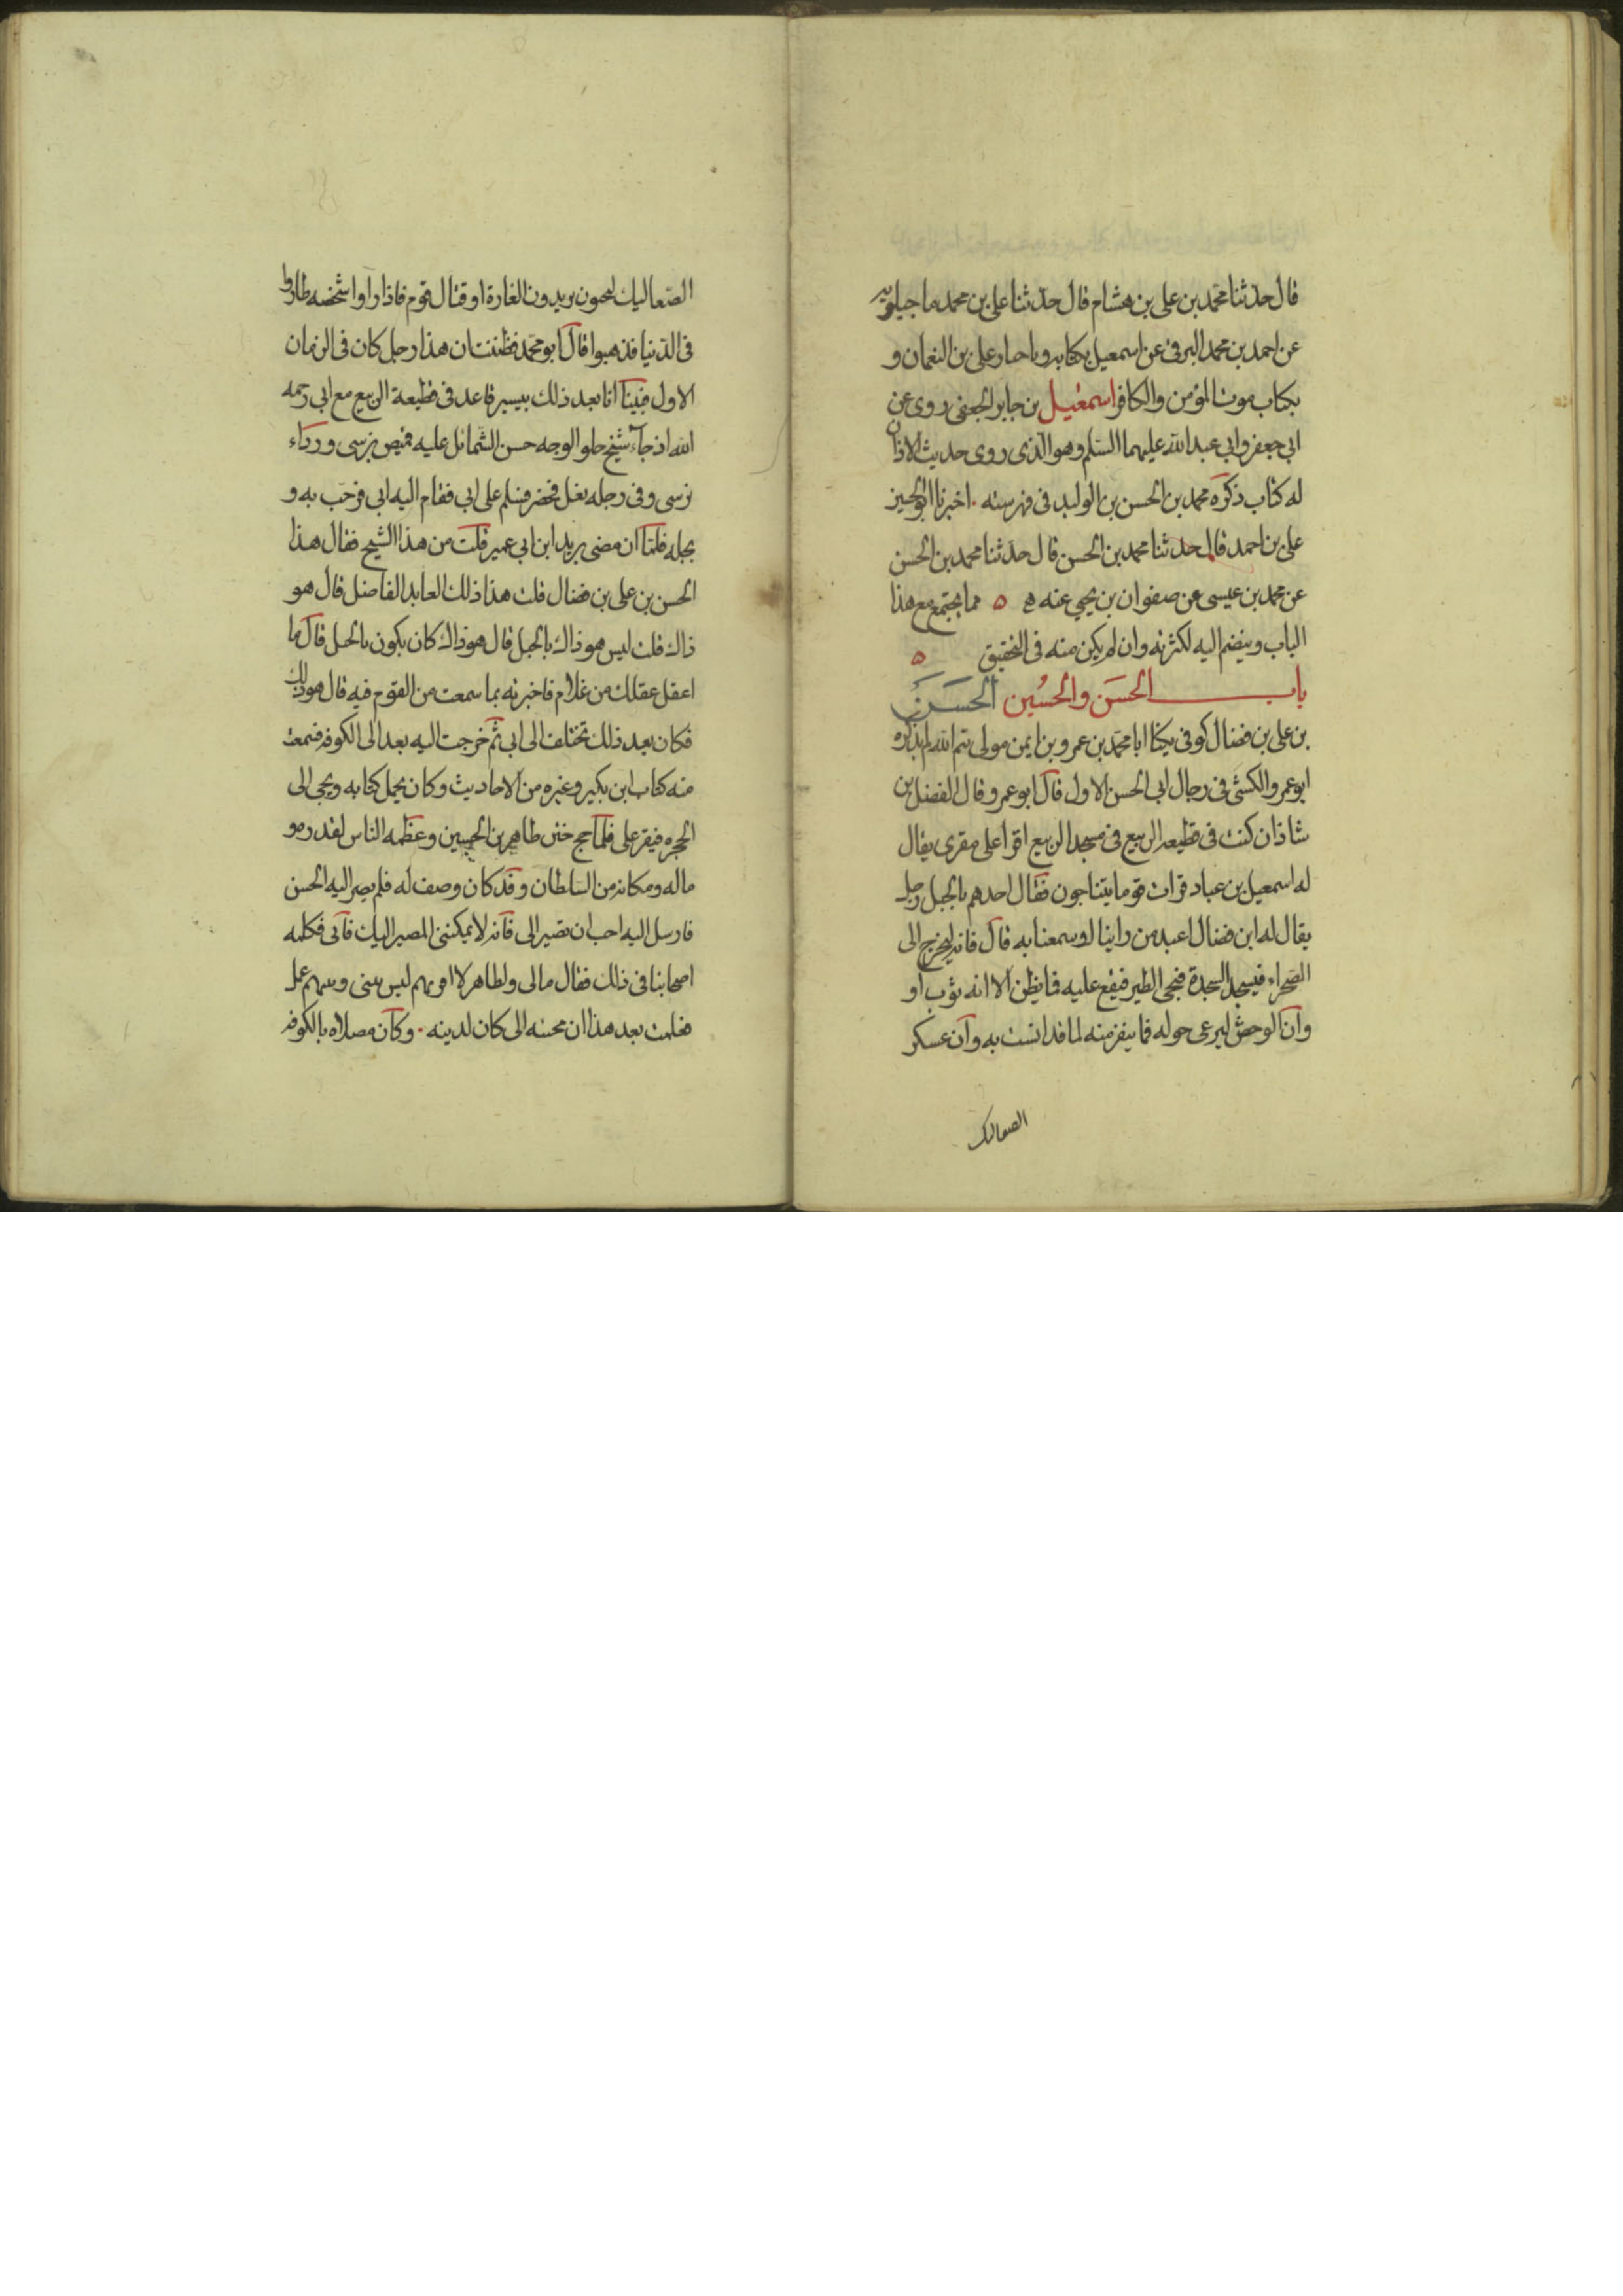 قال حدثنا محمد بن علي بن هشام قال حدثنا علي بن محمد ماجيلويه
عن احمد بن محمد البرقي عن اسمعيل بكتابه وباخبار علي بن النعمان و
بكتاب موت المؤمن والكافر اسمعيل بن جابر الجعفي روى عن
ابي جعفر وابي عبد الله عليهما السلم وهو الذي روى حديث الاذان
له كتاب ذكره محمد بن الحسن بن الوليد في فهرسته . اخبرنا ابو الحسين
علي بن احمد قال حدثنا محمد بن الحسن قال حدثنا محمد بن الحسن
عن محمد بن عيسى عن صفوان بن يحيى عنه ه ٥ مما يجتمع مع هذا
الباب وينضم اليه لكثرته وان لم يكن منه في التحقيق ٥
باب الحسَن والحسُين الحسَن
بن علي بن فضال كوفي يكنا ابا محمد بن عمرو بن ايمن مولى تيم الله لم يذكره
ابو عمرو الكشي في رجال ابي الحسن الاول قال ابو عمرو قال الفضل بن
شاذان كنت في قطيعه الربيع في مسجد الربيع اقرأ على مقرى يقال
له اسمعيل بن عباد فرات قوما يتناجون فقال احدهم بالجبل رجل
يقال له ابن فضال اعبد من راينا او سمعنا به قال فانه ليخرج الى
الصحراء فيسجد السجدة فيجى الطير فيقع عليه فما يظن الا انه ثوب او
وان الوحش ليرعى حوله فما ينفر منه لما قد انست به وان عسكر
الصعاليك
الصعاليك ليجون يريدون الغارة او قتال قوم فاذا رأوا شخصه طاروا
في الدنيا فذهبوا قال ابو محمد فظننت ان هذا رجل كان في الزمان
الاول فبينا انا بعد ذلك بيسير قاعد في قطيعة الربيع مع ابي رحمه
الله اذ جآء شيخ حلو الوجه حسن الشمائل عليه قميص نرسى ورداء
نرسى وفي رجله نعل مخصر فسلم على ابي فقام اليه ابي فرحب به و
بجله فلما ان مضى يريد ابن ابي عمير قلت من هذا الشيخ فقال هذا
الحسن بن علي بن فضال قلت هذا ذلك العابد الفاضل قال هو
ذاك قلت ليس هو ذاك بالجبل قال هو ذاك كان يكون بالجبل قال ما
اعقل عقلك من غلام فاخبرته بما سمعت من القوم فيه قال هو ذلك
فكان بعد ذلك تختلف الى ابي ثم خرجت اليه بعد الى الكوفه فسمعت
منه كتاب ابن بكير وغيره من الاحاديث وكان يحمل كتابه ويجى الى
الحجره فيقر على فلما حج ختن طاهر بن الحسين وعظمه الناس لقدره و
ماله ومكانه من السلطان وقد كان وصف له فلم يصر اليه الحسن
فارسل اليه احب ان تصير الى فانه لا يمكنني المصير اليك فابى فكلمه
اصحابنا في ذلك فقال مالى ولطاهر لا اقربهم ليس بينى وبينهم عمل
فعلمت بعد هذا ان مجيئه الى كان لدينه . وكان مصلاه بالكوفه